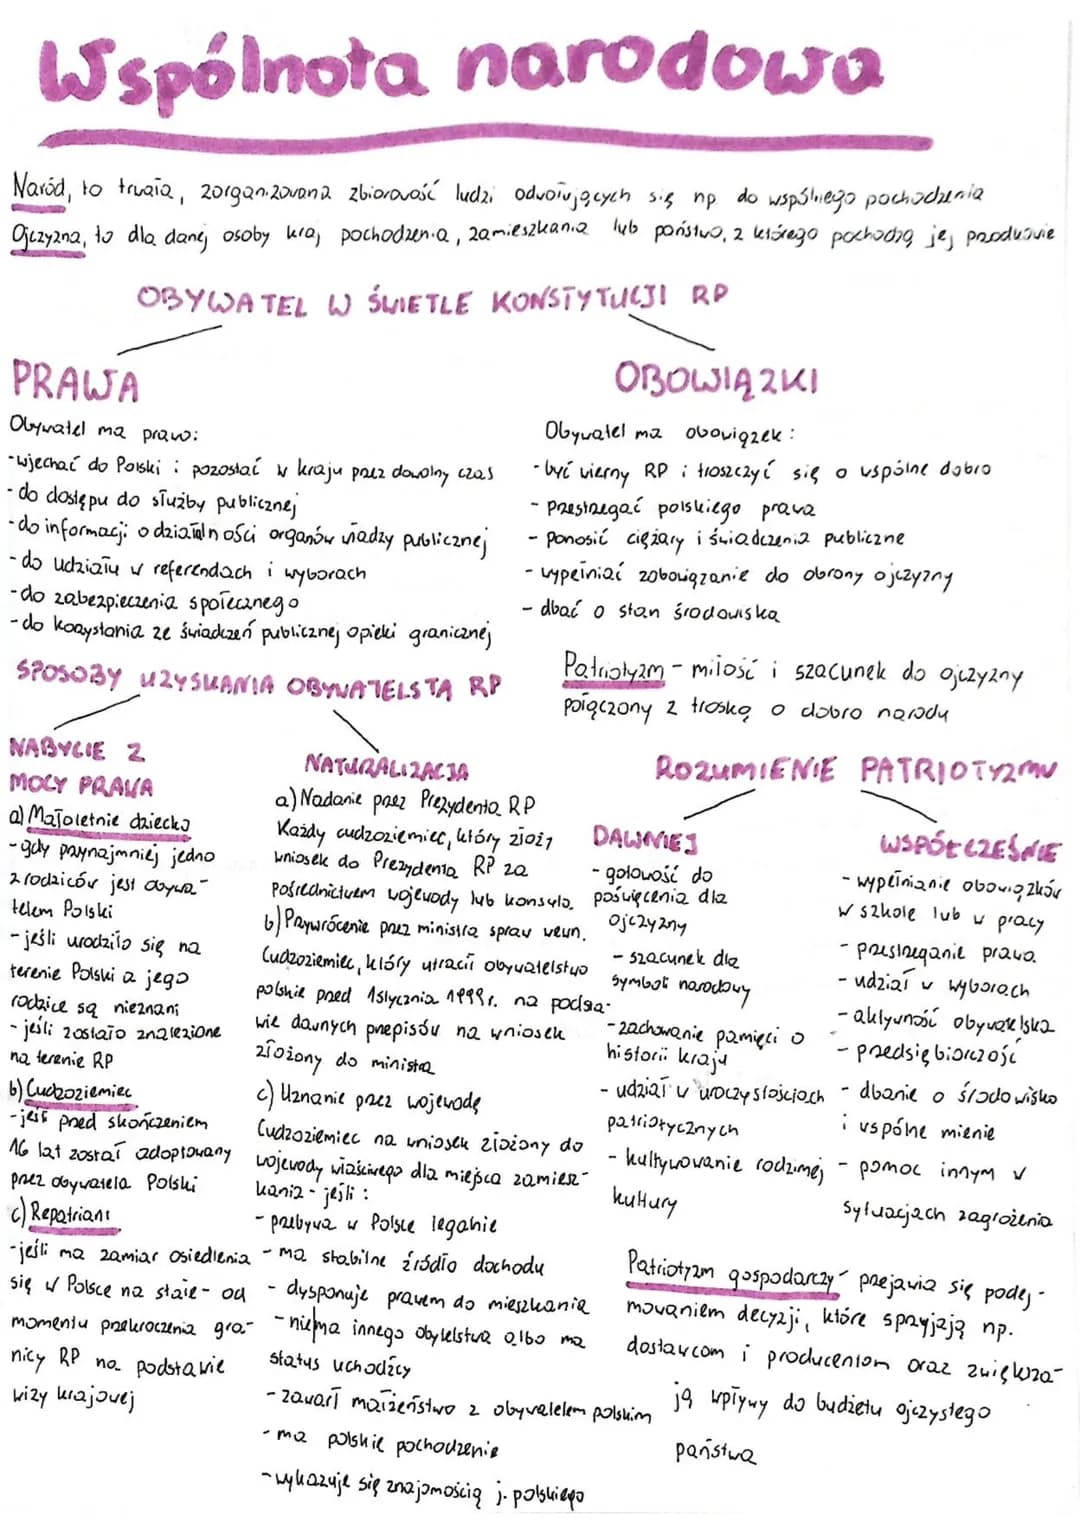 Wspólnota narodowa
Naród, to trwała, zorganizowana zbiorowość ludzi odwołujących się np do wspólnego pochodzenia
Ojczyzna, to dla danej osoby kraj pochodzenia, zamieszkania lub państwo, z którego pochodzą jej przodkowie
OBYWATEL W ŚWIETLE KONSTYTUCJI RP
PRAWA
Obywatel ma prawo:
- wjechać do Polski i pozostać w kraju przez dowolny czas
- do dostępu do służby publicznej
- do informacji o działalności organów władzy publicznej
- do udziału w referendach i wyborach
- do zabezpieczenia społecznego
- do korzystania ze świadczeń publicznej opieki granicznej
OBOWIĄZKI
Obywatel ma obowiązek:
- być wierny RP i troszczyć się o wspólne dobro
- przestrzegać polskiego prawa
- ponosić ciężary i świadczenia publiczne
- wypełniać zobowiązanie do obrony ojczyzny
- dbać o stan środowiska
SPOSOBY UZYSKANIA OBYWATELSTA RP
NABYCIE Z
MOCY PRAWA
a) Małoletnie dziecko
- gdy przynajmniej jedno
z rodziców jest obywa-
telem Polski
- jeśli urodziło się na
terenie Polski a jego
rodzice są nieznani
- jeśli zostało znalezione
na terenie RP
b) Cudzoziemiec
- jeśli przed skończeniem
16 lat został adoptowany
przez obywatela Polski
c) Repatriant
- jeśli ma zamiar osiedlenia
się w Polsce na stałe - od
momentu przekroczenia gra-
nicy RP na podstawie
wizy krajowej
NATURALIZACJA
a) Nadanie przez Prezydenta RP
Każdy cudzoziemiec, który złoży
wniosek do Prezydenta RP za
pośrednictwem wojewody lub konsula
b) Przywrócenie przez ministra spraw wewn.
Cudzoziemiec, który utracił obywatelstwo
polskie przed 1 stycznia 1999 r. na podsta-
wie dawnych przepisów na wniosek
złożony do ministra
c) Uznanie przez wojewodę
Cudzoziemiec na wniosek złożony do
wojewody właściwego dla miejsca zamiesz-
kania - jeśli:
- przebywa w Polsce legalnie
- ma stabilne źródło dochodu
- dysponuje prawem do mieszkania
- nie ma innego obytelstwa albo ma
status uchodźcy
- zawarł małżeństwo z obywatelem polskim
- ma polskie pochodzenie
- wykazuje się znajomością j. polskiego
Patriotyzm - miłość i szacunek do ojczyzny
połączony z troską o dobro narodu
ROZUMIENIE PATRIOTYZMU
DAWNIEJ
- gotowość do
poświęcenia dla
ojczyzny
- szacunek dla
symboli narodowy
- zachowanie pamięci o
historii kraju
- udział w uroczystościach
patriotycznych
- kultywowanie rodzimej
kultury
WSPÓŁCZEŚNIE
- wypełnianie obowiązków
w szkole lub w pracy
- przestrzeganie prawa
- udział w wyborach
- aktywność obywatelska
- przedsiębiorczość
- dbanie o środowisko
i wspólne mienie
- pomoc innym w
sytuacjach zagrożenia
Patriotyzm gospodarczy - przejawia się podej-
mowaniem decyzji, które sprzyjają np.
dostawcom i producentom oraz zwiększa-
ją wpływy do budżetu ojczystego
państwa